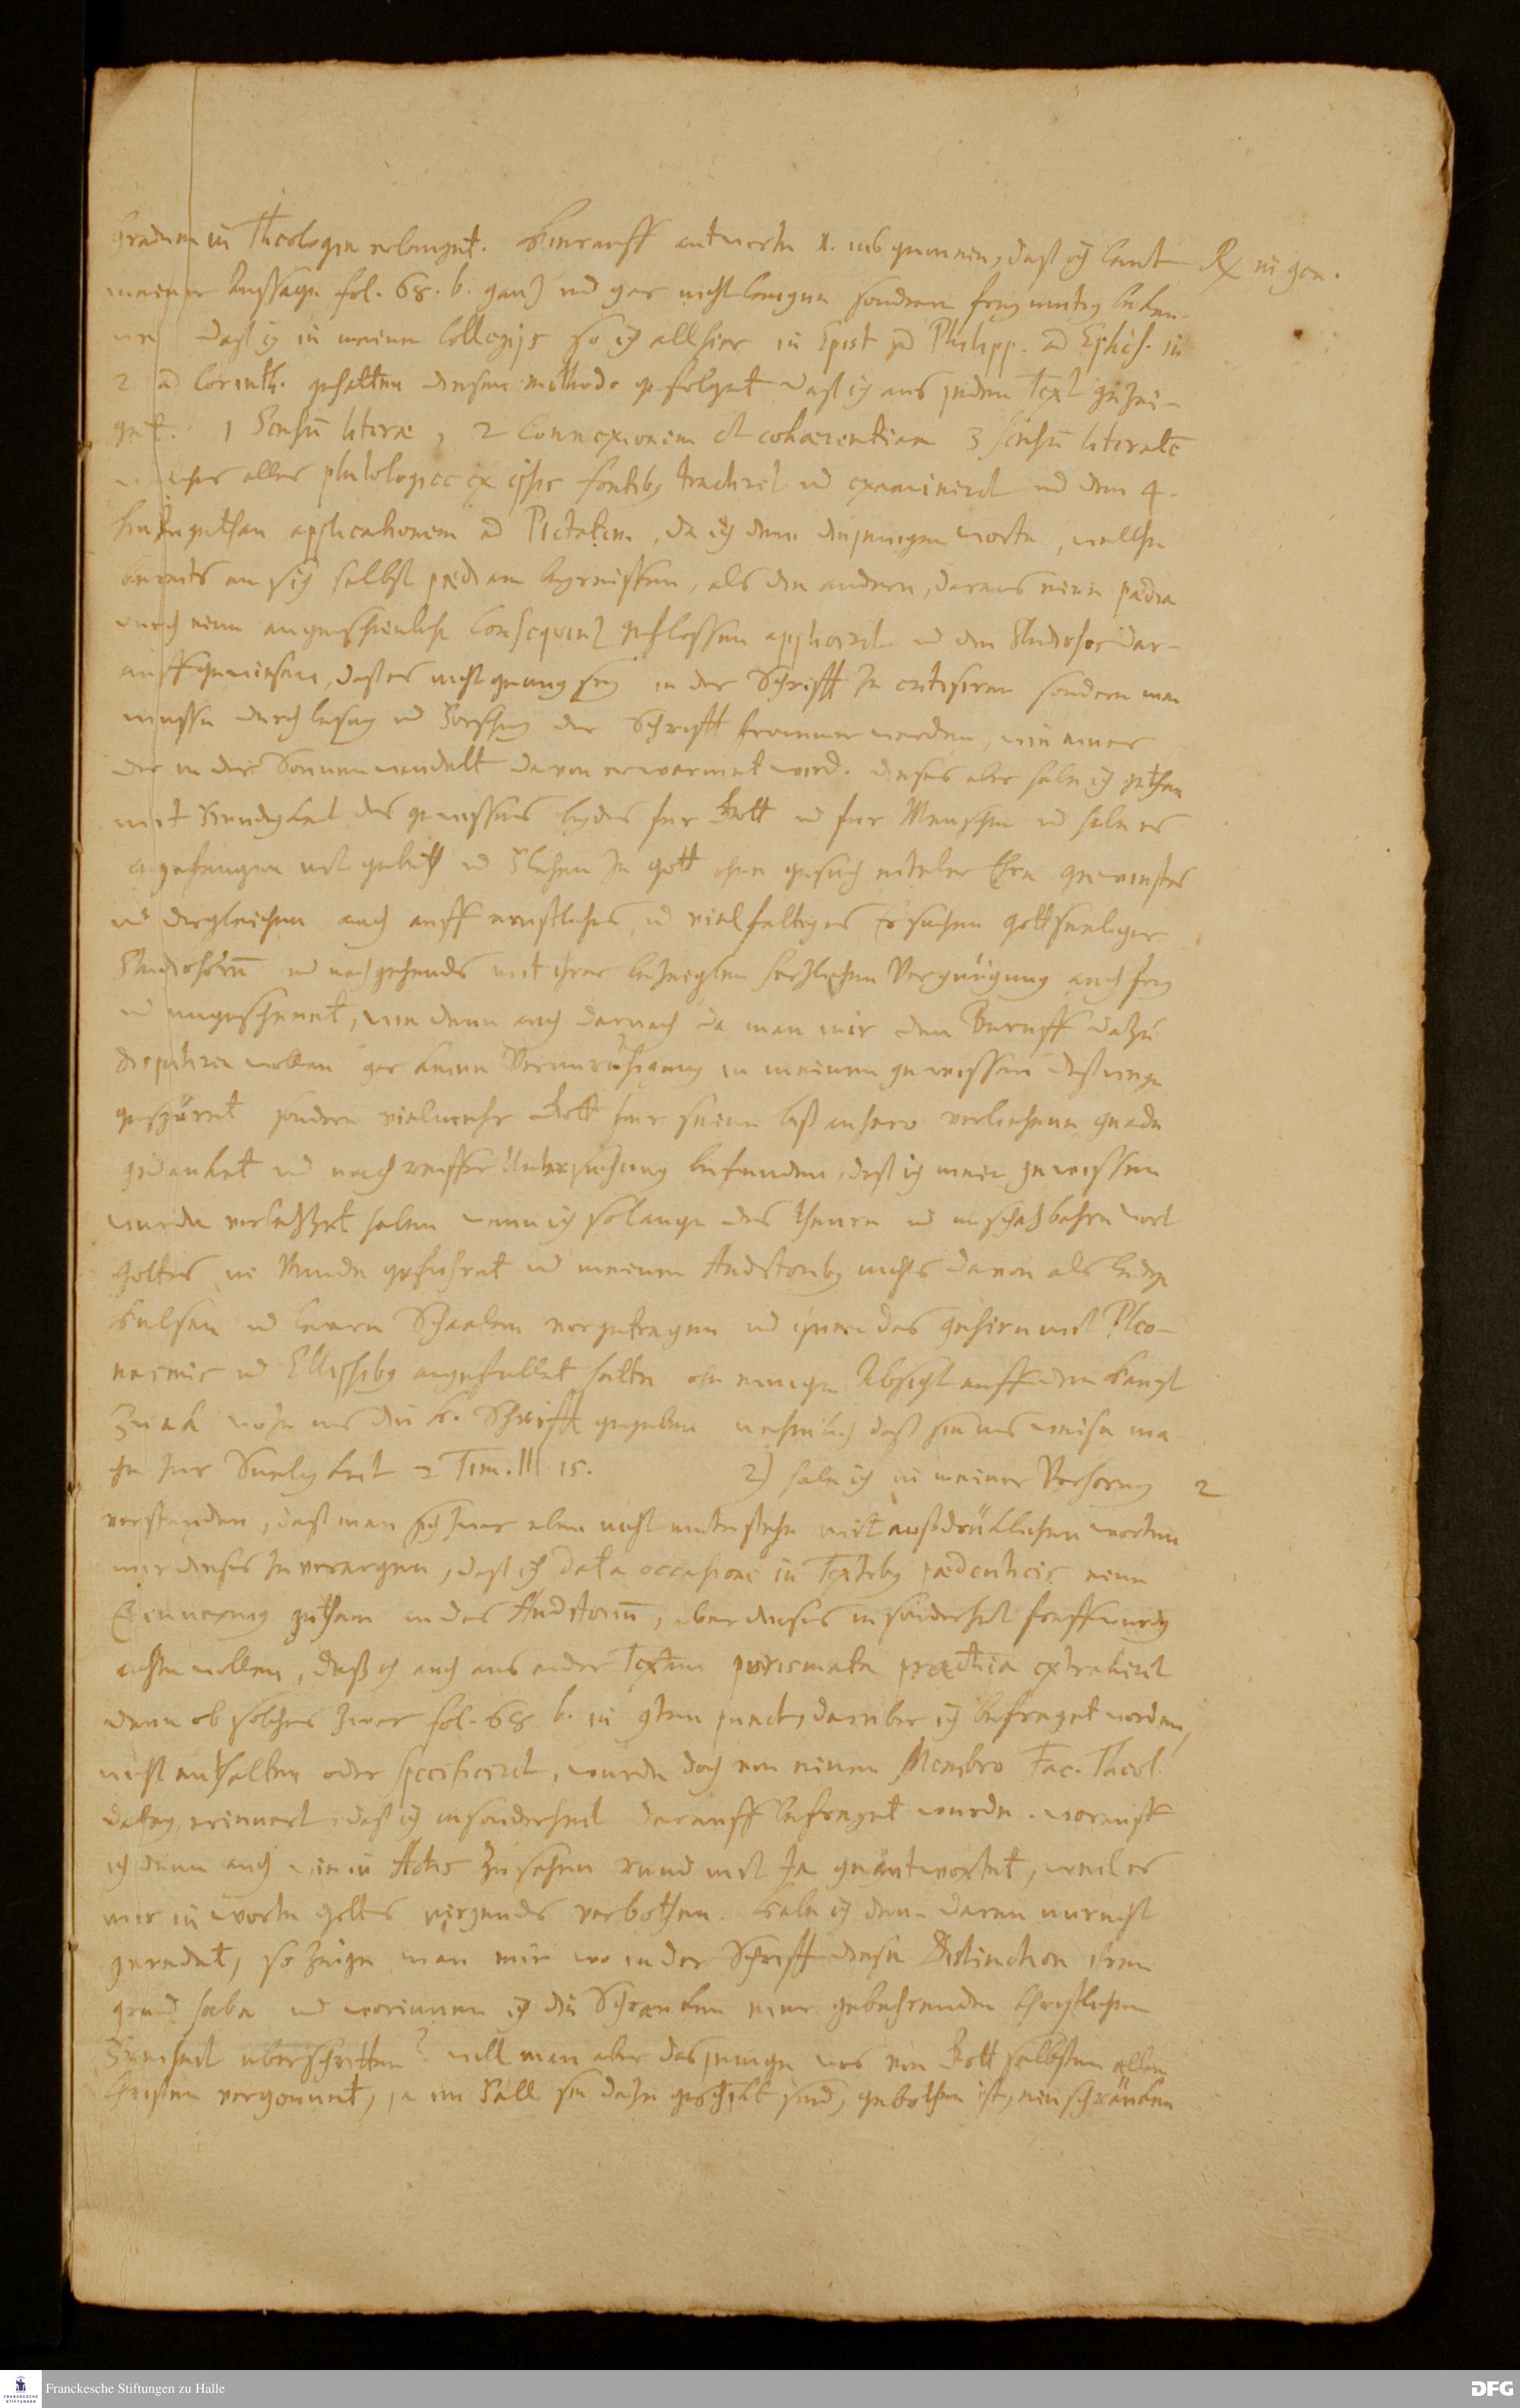 Gradum in Theologia erlanget. Hierauff antworte 1. ins gemein, daß ich laut
Rx in gen.
meiner Aussage fol. 68. b. ganz und gar nicht leugne sondern freymutig beken-
ne daß ich in meinen Collegijs so ich allhier in Epist ad Philipp. ad Ephes. in
2 ad Corinth. gehalten diesem methodo gefolget daß ich aus jeden Text gezei-
get. 1 Sensum literae, 2 Connexionem et cohaerentiam 3 sensum literalem
welches alles philologice ex ipsis fontibus tractiret und examiniret und dem 4.
hinzugethan applicationem ad Pietatem, da ich denn diejenigen worte, wellche
bereits an sich selbst praedia begreiffen, als die andern, daraus eine
durch eine augenscheinliche Consequenz geflossen appliciret und den Studiosos dar-
auff gewiesen, daß es nicht genung sey in der Schrifft zu critisiren sondern man
müsse durch lesung und Forschung der Schrifft frommer werden, wie einer
der in der Sonnen wandelt davon erwarmet wird. dieses aber habe ich gethan
mit Freudigkeit des gewissens beydes fur Gott und fur Menschen und habe es
angefangen mit gebeth und Flehen zu gott ohne gesuch eiteler Ehre gewinstes
und dergleichen auch auff ernstliches und vielfaltiges Ersuchen gottseeliger
Studiosorum und nachgehends mit ihrer bezeigten herzlichen Vergnügung auch frey
und ungescheuet, wie denn auch darnach da man mir den Beruff dazu
disputiren wollen gar keine Verunruhigung in meinem gewissen deßwege
gespüret sondern vielmehr Gott fur seine biß anhero verliehene gnade
gedanket und nach reiffer Untersuchung befunden, daß ich mein gewissen
wurde verletzet haben wenn ich solange das theure und unschatzbahre wort
Gottes im Munde gefuhret und meinen Auditoribus nichts davon als ledige
hulsen und leeren Schaalen vorgetragen und ihnen das gehirn mit Pleo-
nasmis und Ellipsibus angefullet hatte ohne einige Absicht auff den haupt
Zwek wozu uns die h. Schrifft gegeben nehmlich daß sie uns weise ma
che zur Seeligkeit 2 Tim. III 15. 2) habe ich in meiner Verhorung
2
verstanden, daß man sich zwar eben nicht unterstehe mit außdrüklichen worten
mir dieses zu verargen, daß ich data occasione in Textibus paedeuticis eine
Erinnerung gethan an das Auditorium, aber dieses in sonderheit straffwurdig
achten wollen, daß ich auch aus ander Texten porismata practica extrahiret
denn ob solches zwar fol. 68 b. in 9ten punct, daruber ich befraget worden,
nicht enthalten oder specificiret, wurde doch von einem Membro Fac. Theol.
dabey erinnert, daß ich insonderheit darauff befraget wurde. worauff
ich denn auch wie in Actis zu sehen rund mit Ja geantwortet, weil es
mir in worte gottes nirgends verbothen. Habe ich denn daran unrecht
geredet, so zeige man mir wo in der Schrifft diese Distinction ihren
grund habe und worinnen ich die Schranken einer gebuhrenden Christlichen
Freiheit uberschritten? will man aber dasjenige was von Gott selbsten allen
Christen vergonnet, ja im Fall sie dazu geschikt sind, gebothen ist, einschränken
Franckesche Stiftungen zu Halle
DFG